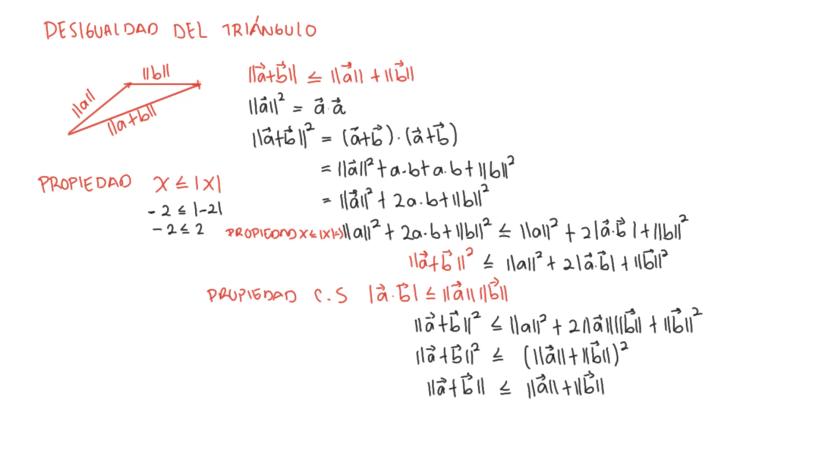 DESIGUALDAD DEL TRIÁNGULO
||a||
||b||
||a+b||
||a⃗+b⃗|| ≤ ||a⃗|| + ||b⃗||
||a⃗||² = a⃗·a⃗
||a⃗+b⃗||² = (a⃗+b⃗)·(a⃗+b⃗)
= ||a⃗||² + a·b + a·b + ||b||²
= ||a⃗||² + 2a·b + ||b||²
PROPIEDAD x ≤ |x|
-2 ≤ |-2|
-2 ≤ 2
PROPIEDAD x≤|x|→ ||a||² + 2a·b + ||b||² ≤ ||a||² + 2|a⃗·b⃗| + ||b||²
||a⃗+b⃗||² ≤ ||a||² + 2|a⃗·b⃗| + ||b⃗||²
PROPIEDAD C.S |a⃗·b⃗| ≤ ||a⃗|| ||b⃗||
||a⃗+b⃗||² ≤ ||a||² + 2||a⃗||||b⃗|| + ||b⃗||²
||a⃗+b⃗||² ≤ (||a⃗||+||b⃗||)²
||a⃗+b⃗|| ≤ ||a⃗||+||b⃗||